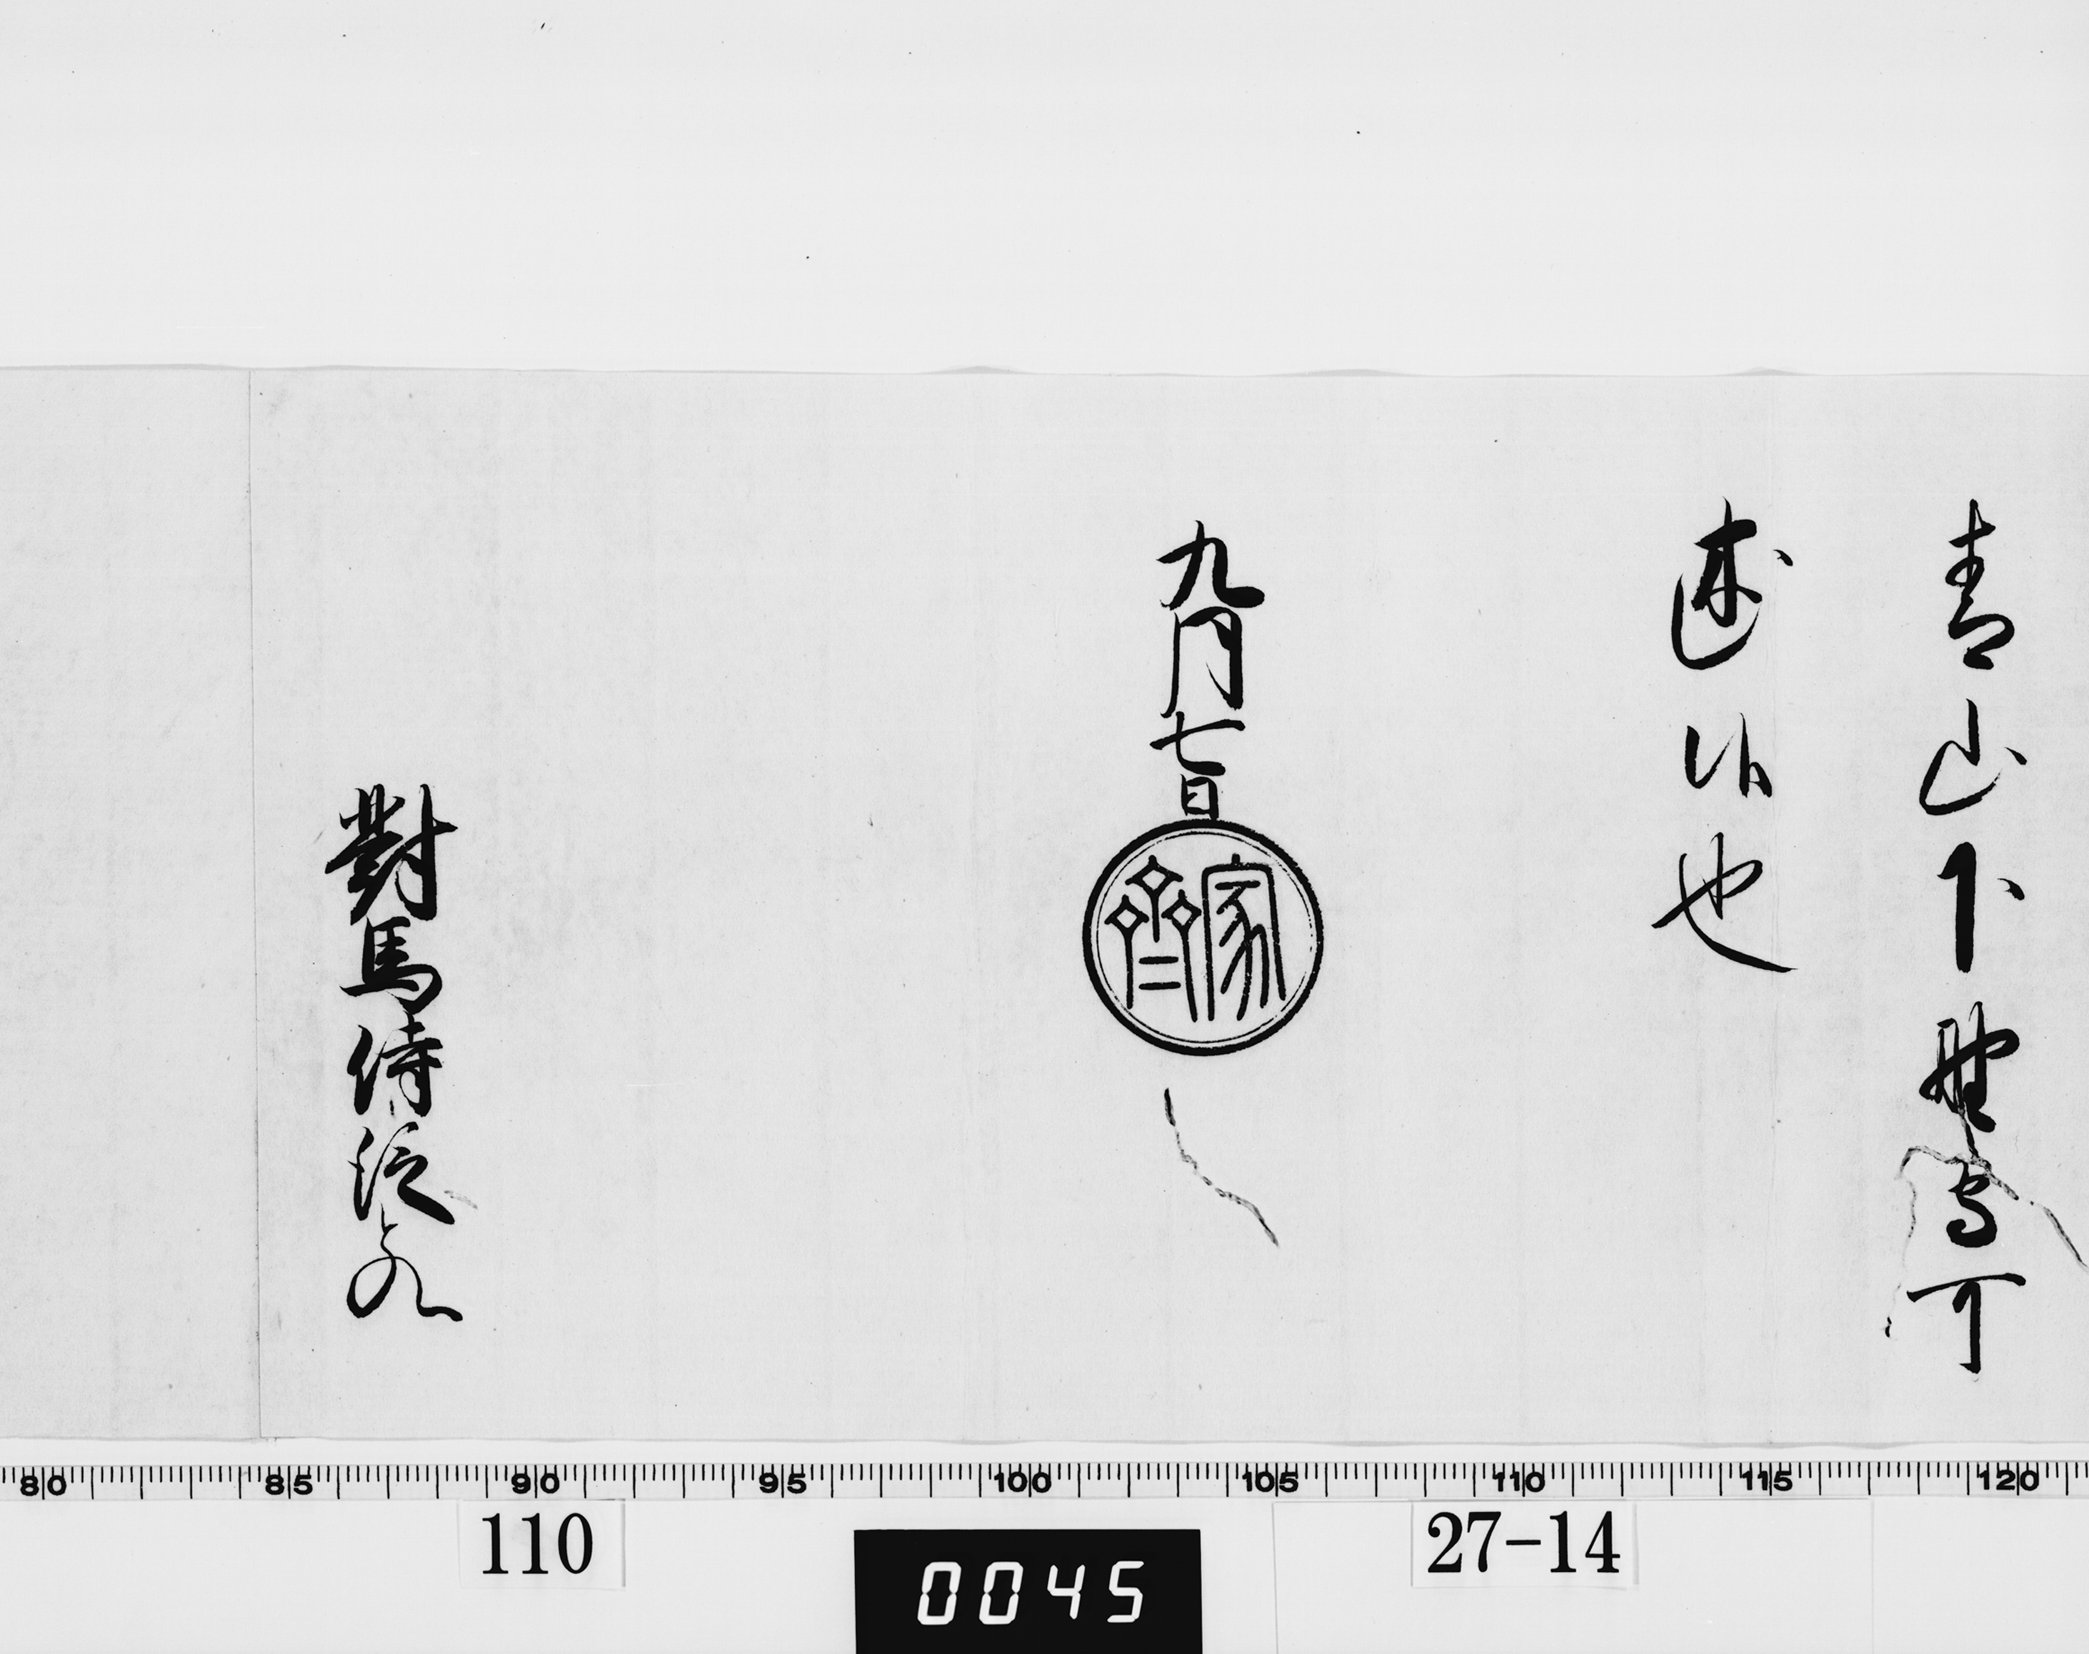 青山下野守可
述候也
九月七日
家齊
對馬侍従殿
80 85 90 95 100 105 110 115 120
110
0045
27-14